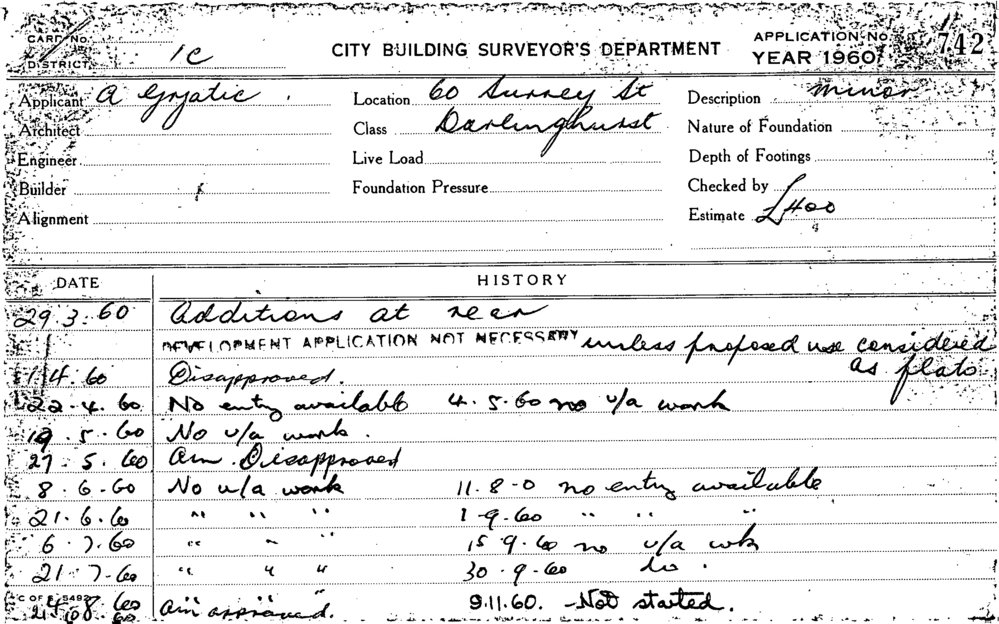 CARD No.
DISTRICT 1C
CITY BUILDING SURVEYOR'S DEPARTMENT
APPLICATION No 742
YEAR 1960
Applicant A Grjatic
Location 60 Surrey St
Description minor
Architect
Class Darlinghurst
Nature of Foundation
Engineer
Live Load
Depth of Footings
Builder
Foundation Pressure
Checked by
Alignment
Estimate £400
DATE HISTORY
29.3.60 Additions at rear
DEVELOPMENT APPLICATION NOT NECESSARY unless proposed use considered
as flats
4.60 Disapproved.
22.4.60 No entry available 4.5.60 no u/a work
19.5.60 No u/a work.
27.5.60 Am. Disapproved
8.6.60 No u/a work 11.8-0 no entry available
21.6.60 " " " 1-9.60 " " "
6.7.60 " " " 15.9.60 no u/a wk
21.7-60 " " " 30-9-60 do.
Am approved. 9.11.60. - Not started.